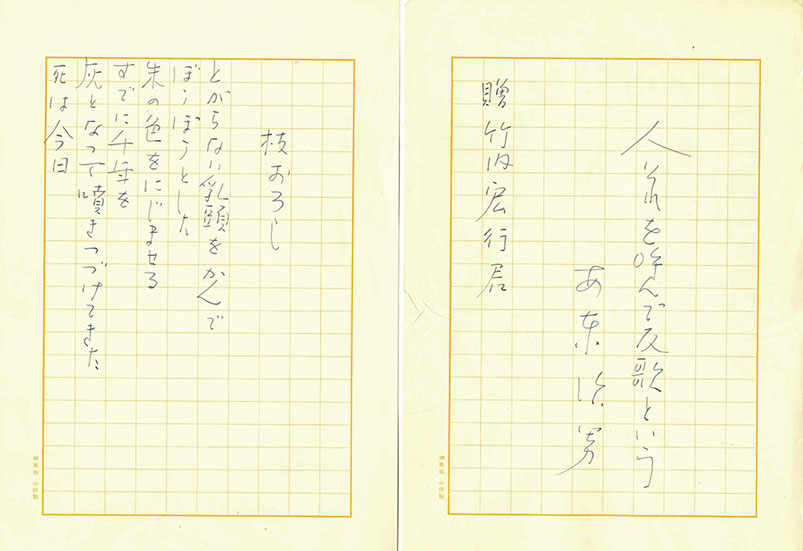 人それを呼んで反歌という
安東次男
贈 竹内宏行君
枝おろし
とがらない乳頭をかんで
ぼうぼうとした
朱の色をにじませる
すでに千年を
灰となって噴きつづけてきた
死は今日
神楽坂 山田製
神楽坂 山田製